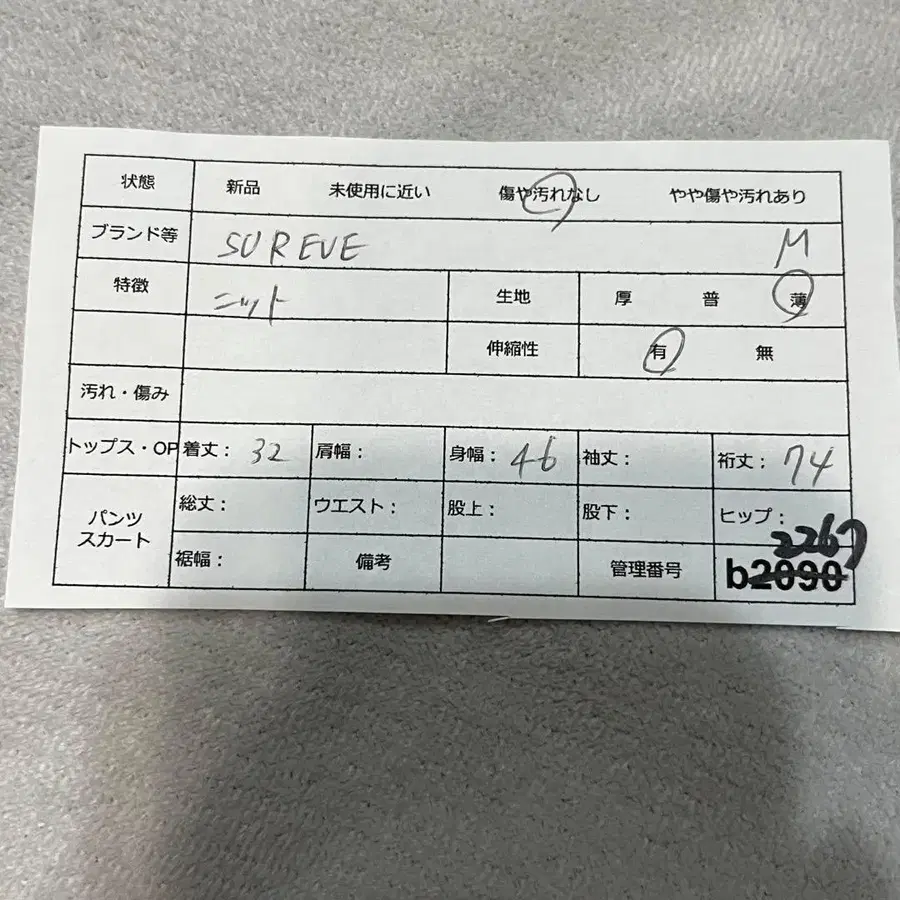 状態 新品 未使用に近い 傷や汚れなし やや傷や汚れあり
ブランド等 SUREVE M
特徴 ニット 生地 厚 普 薄
伸縮性 有 無
汚れ・傷み
トップス・OP 着丈： 32 肩幅： 身幅： 46 袖丈： 裄丈： 74
パンツ スカート 総丈： ウエスト： 股上： 股下： ヒップ：
2267
裾幅： 備考 管理番号 b2090